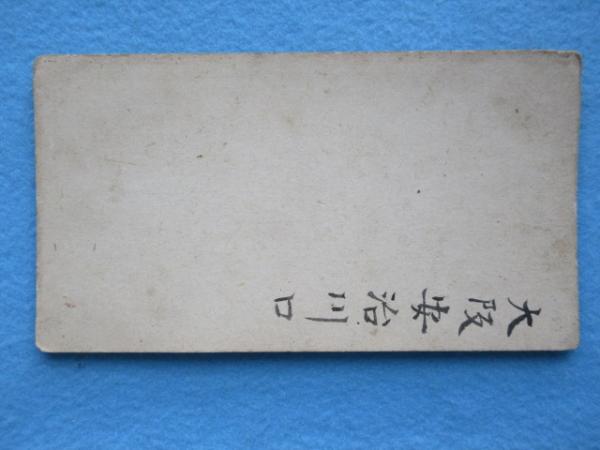 大阪安治川口